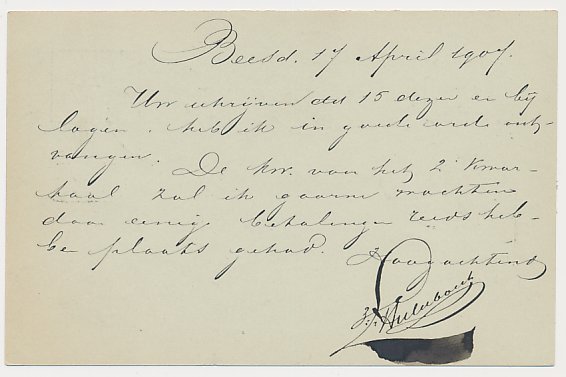 Beesd. 17 April 1907.
Uw schrijven dd 15 dezer en bij
lagen, heb ik in goede orde ont-
vangen. De kw. van het 2e Kwar-
taal zal ik gaarne wachten
daar eenige betalingen reeds heb-
be plaats gehad. Hoogachtend